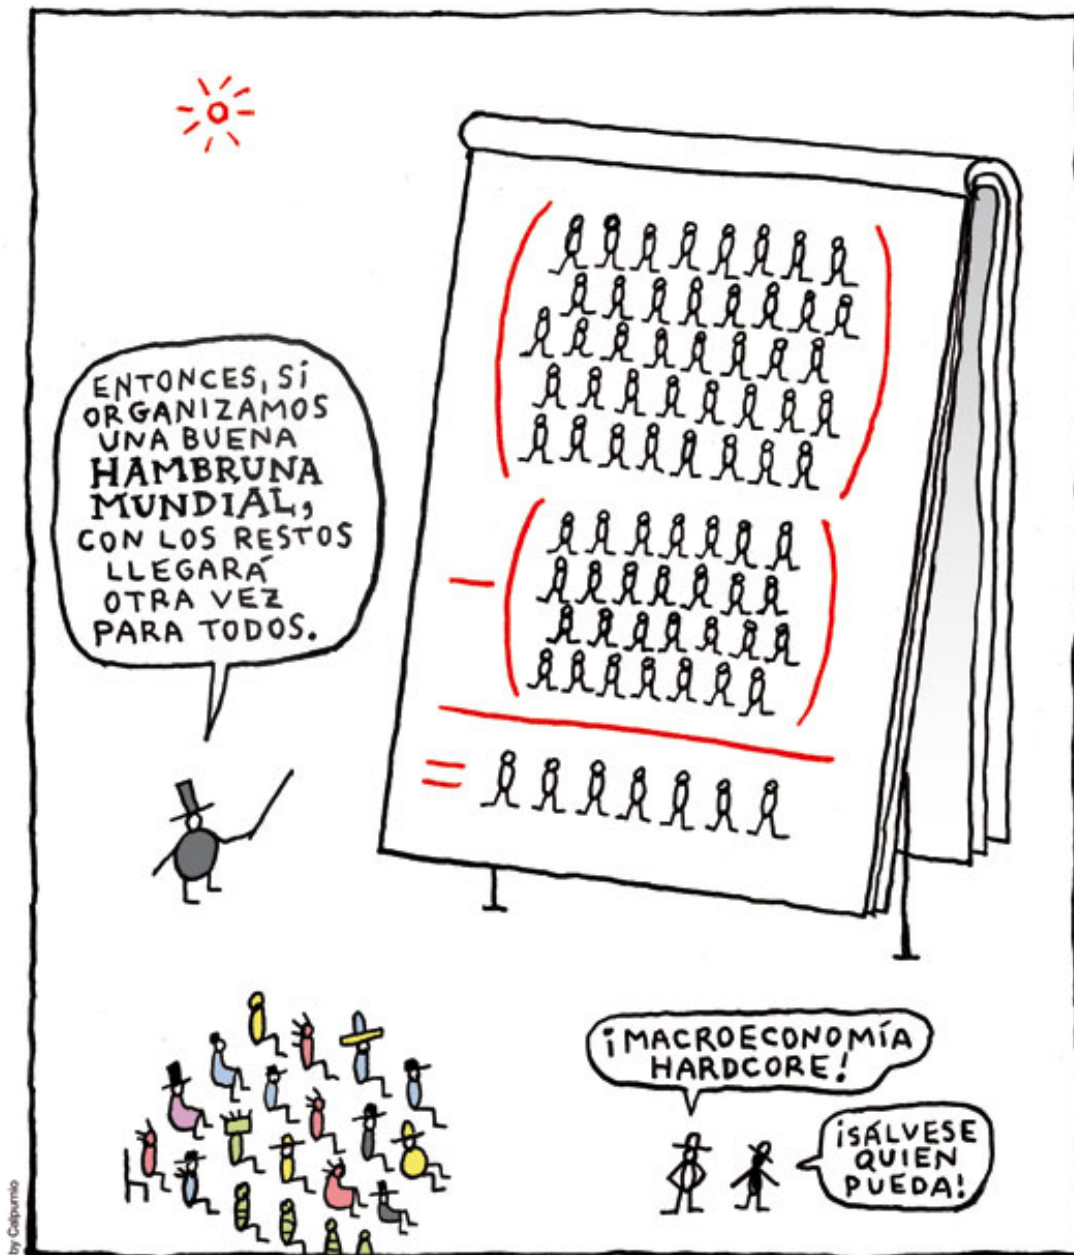 ENTONCES, SÍ
ORGANIZAMOS
UNA BUENA
HAMBRUNA
MUNDIAL,
CON LOS RESTOS
LLEGARÁ
OTRA VEZ
PARA TODOS.
-
=
¡MACROECONOMÍA
HARDCORE!
¡SÁLVESE
QUIEN
PUEDA!
by Calpurnio